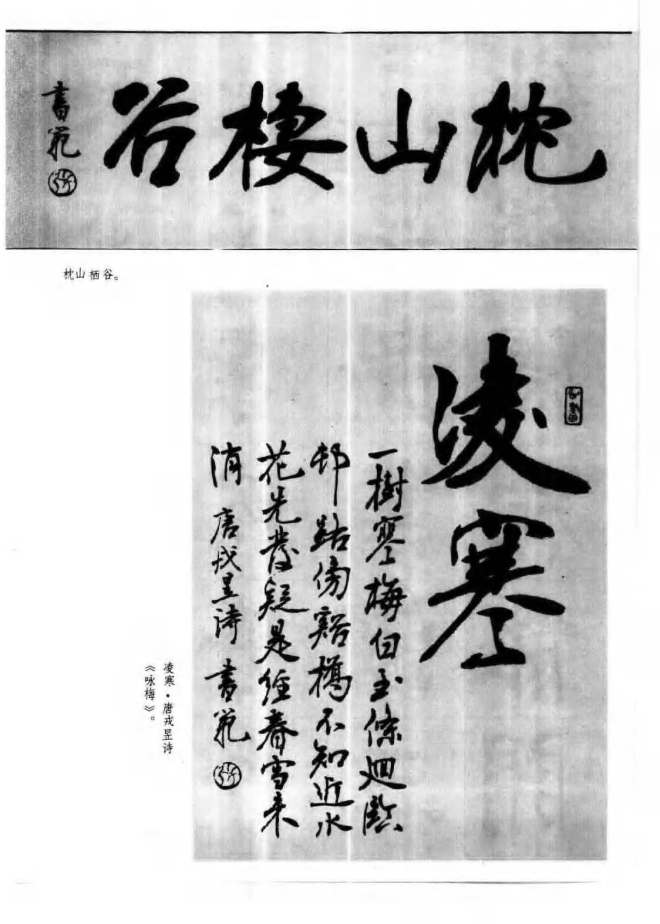 枕山棲谷
書範
枕山栖谷。
凌寒
一樹寒梅白玉條迴臨
邨路傍谿橋不知近水
花先發疑是經春雪未
消 唐戎昱詩 書範
凌寒·唐戎昱诗
《咏梅》。